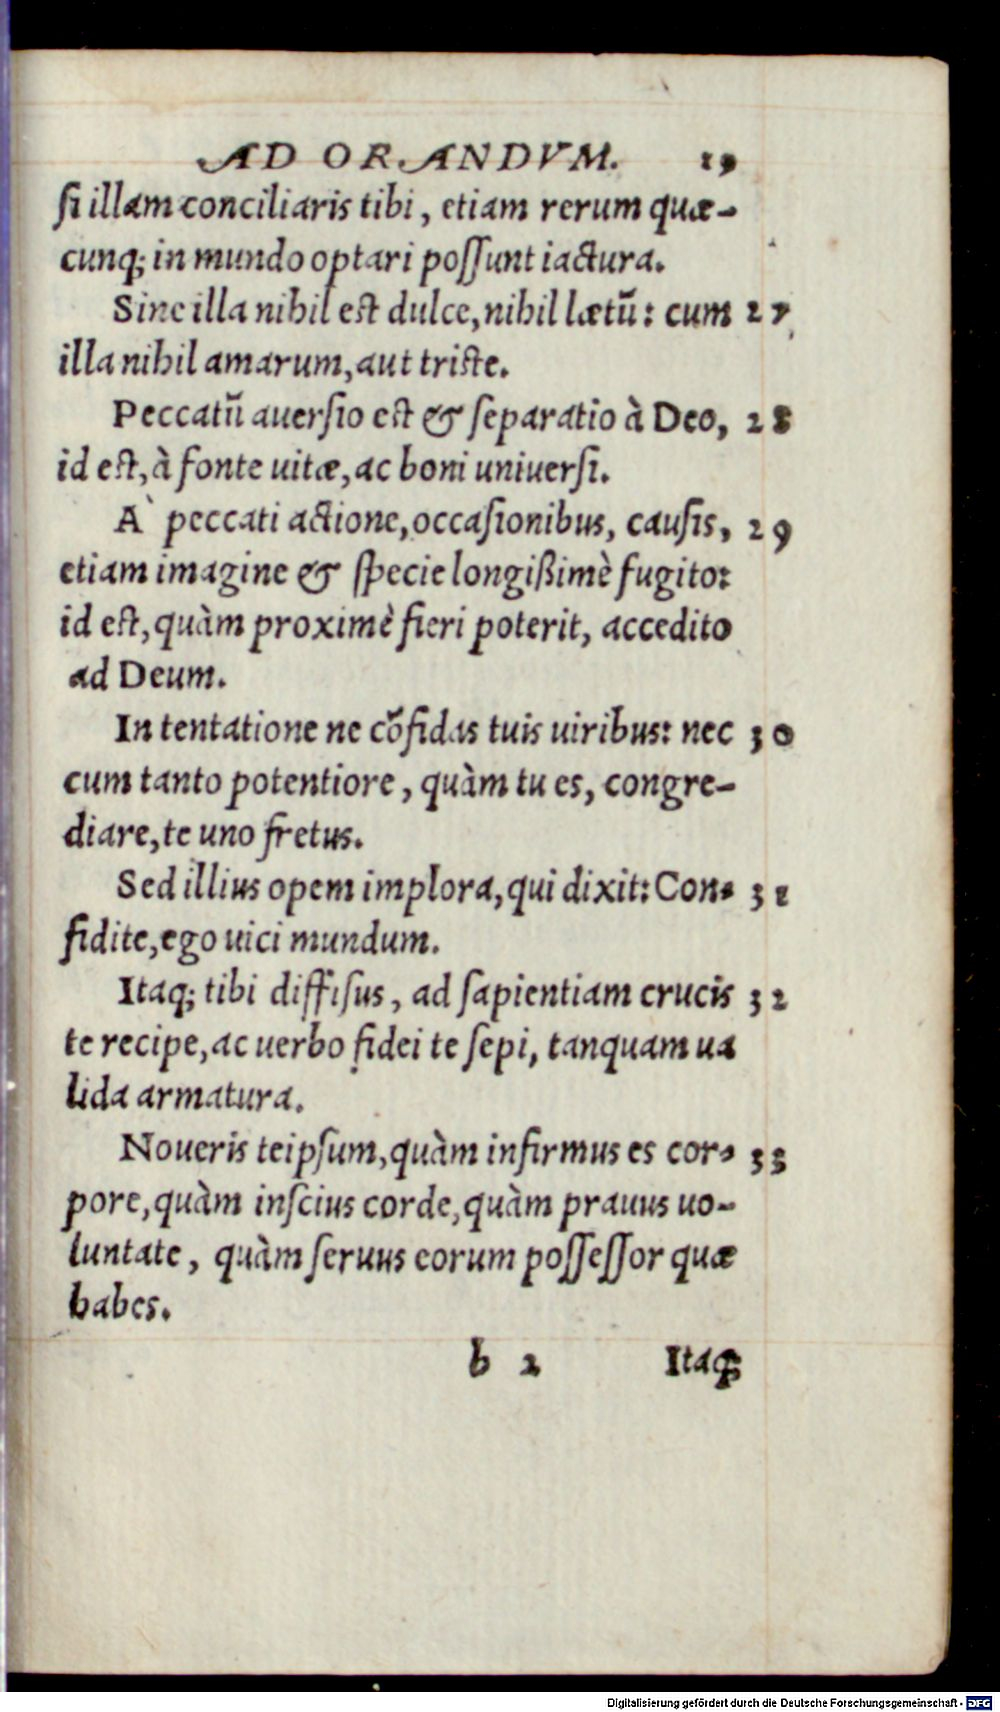 AD ORANDVM. 19
ſi illam conciliaris tibi, etiam rerum quæ-
cunq; in mundo optari poſſunt iactura.
Sine illa nihil eſt dulce, nihil lætũ: cum 27
illa nihil amarum, aut triſte.
Peccatũ auerſio eſt & ſeparatio à Deo, 28
id eſt, à fonte uitæ, ac boni uniuerſi.
A` peccati actione, occaſionibus, cauſis, 29
etiam imagine & ſpecie longißimè fugito:
id eſt, quàm proximè fieri poterit, accedito
ad Deum.
In tentatione ne cõfidas tuis uiribus: nec 30
cum tanto potentiore, quàm tu es, congre-
diare, te uno fretus.
Sed illius opem implora, qui dixit: Con- 31
fidite, ego uici mundum.
Itaq; tibi diffiſus, ad ſapientiam crucis 32
te recipe, ac uerbo fidei te ſepi, tanquam ua
lida armatura.
Noueris teipſum, quàm infirmus es cor- 33
pore, quàm inſcius corde, quàm prauus uo-
luntate, quàm ſeruus eorum poſſeſſor quæ
habes.
b 2 Itaq;
Digitalisierung gefördert durch die Deutsche Forschungsgemeinschaft - DFG